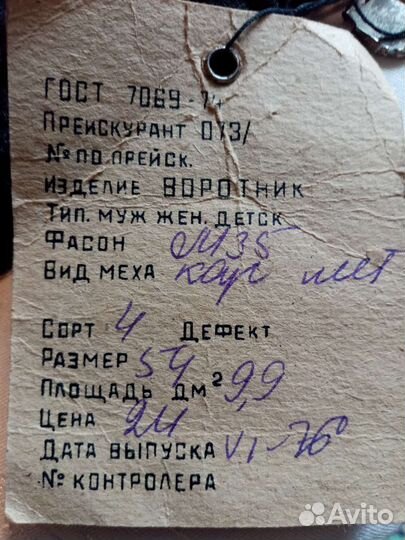 ГОСТ 7069-74
ПРЕЙСКУРАНТ 013/
№ ПО ПРЕЙСК.
ИЗДЕЛИЕ ВОРОТНИК
ТИП. МУЖ ЖЕН. ДЕТСК
ФАСОН М35
ВИД МЕХА кар
СОРТ 4 ДЕФЕКТ
РАЗМЕР 54
ПЛОЩАДЬ ДМ² 9,9
ЦЕНА 24
ДАТА ВЫПУСКА VI-76
№ КОНТРОЛЕРА
Avito